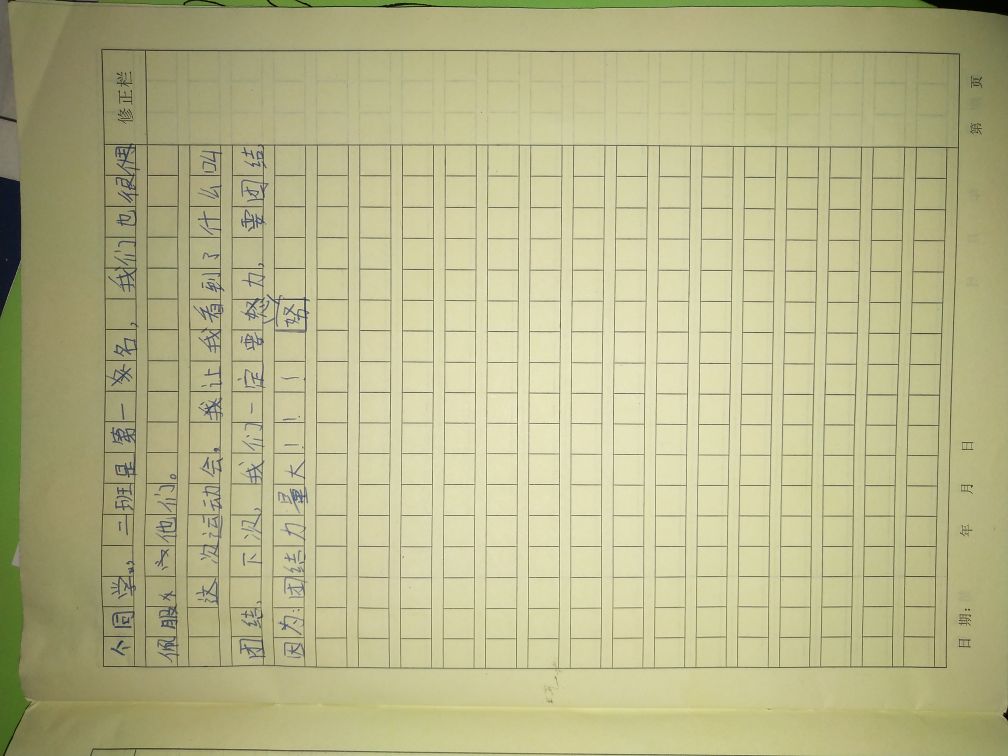 修正栏
个同学。二班是第一名，我们也很佩
佩服他们。
这次运动会，让我看到了什么叫
团结，下次，我们一定要努力，要团结
因为：团结力量大！！！
努
日期： 年 月 日 第 页